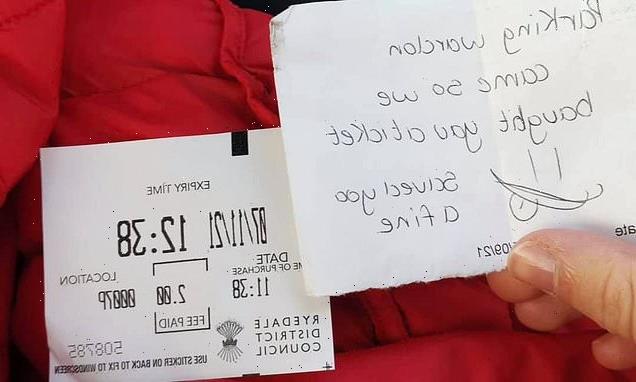 Parking wardon
came so we
bought you a ticket
Saved you
a fine
/09/21
ate
EXPIRY TIME
07/11/21 12:38
DATE
ME OF PURCHASE
LOCATION
11:38 2.00 0007P
FEE PAID
RYEDALE
DISTRICT
COUNCIL
508785
USE STICKER ON BACK TO FIX TO WINDSCREEN